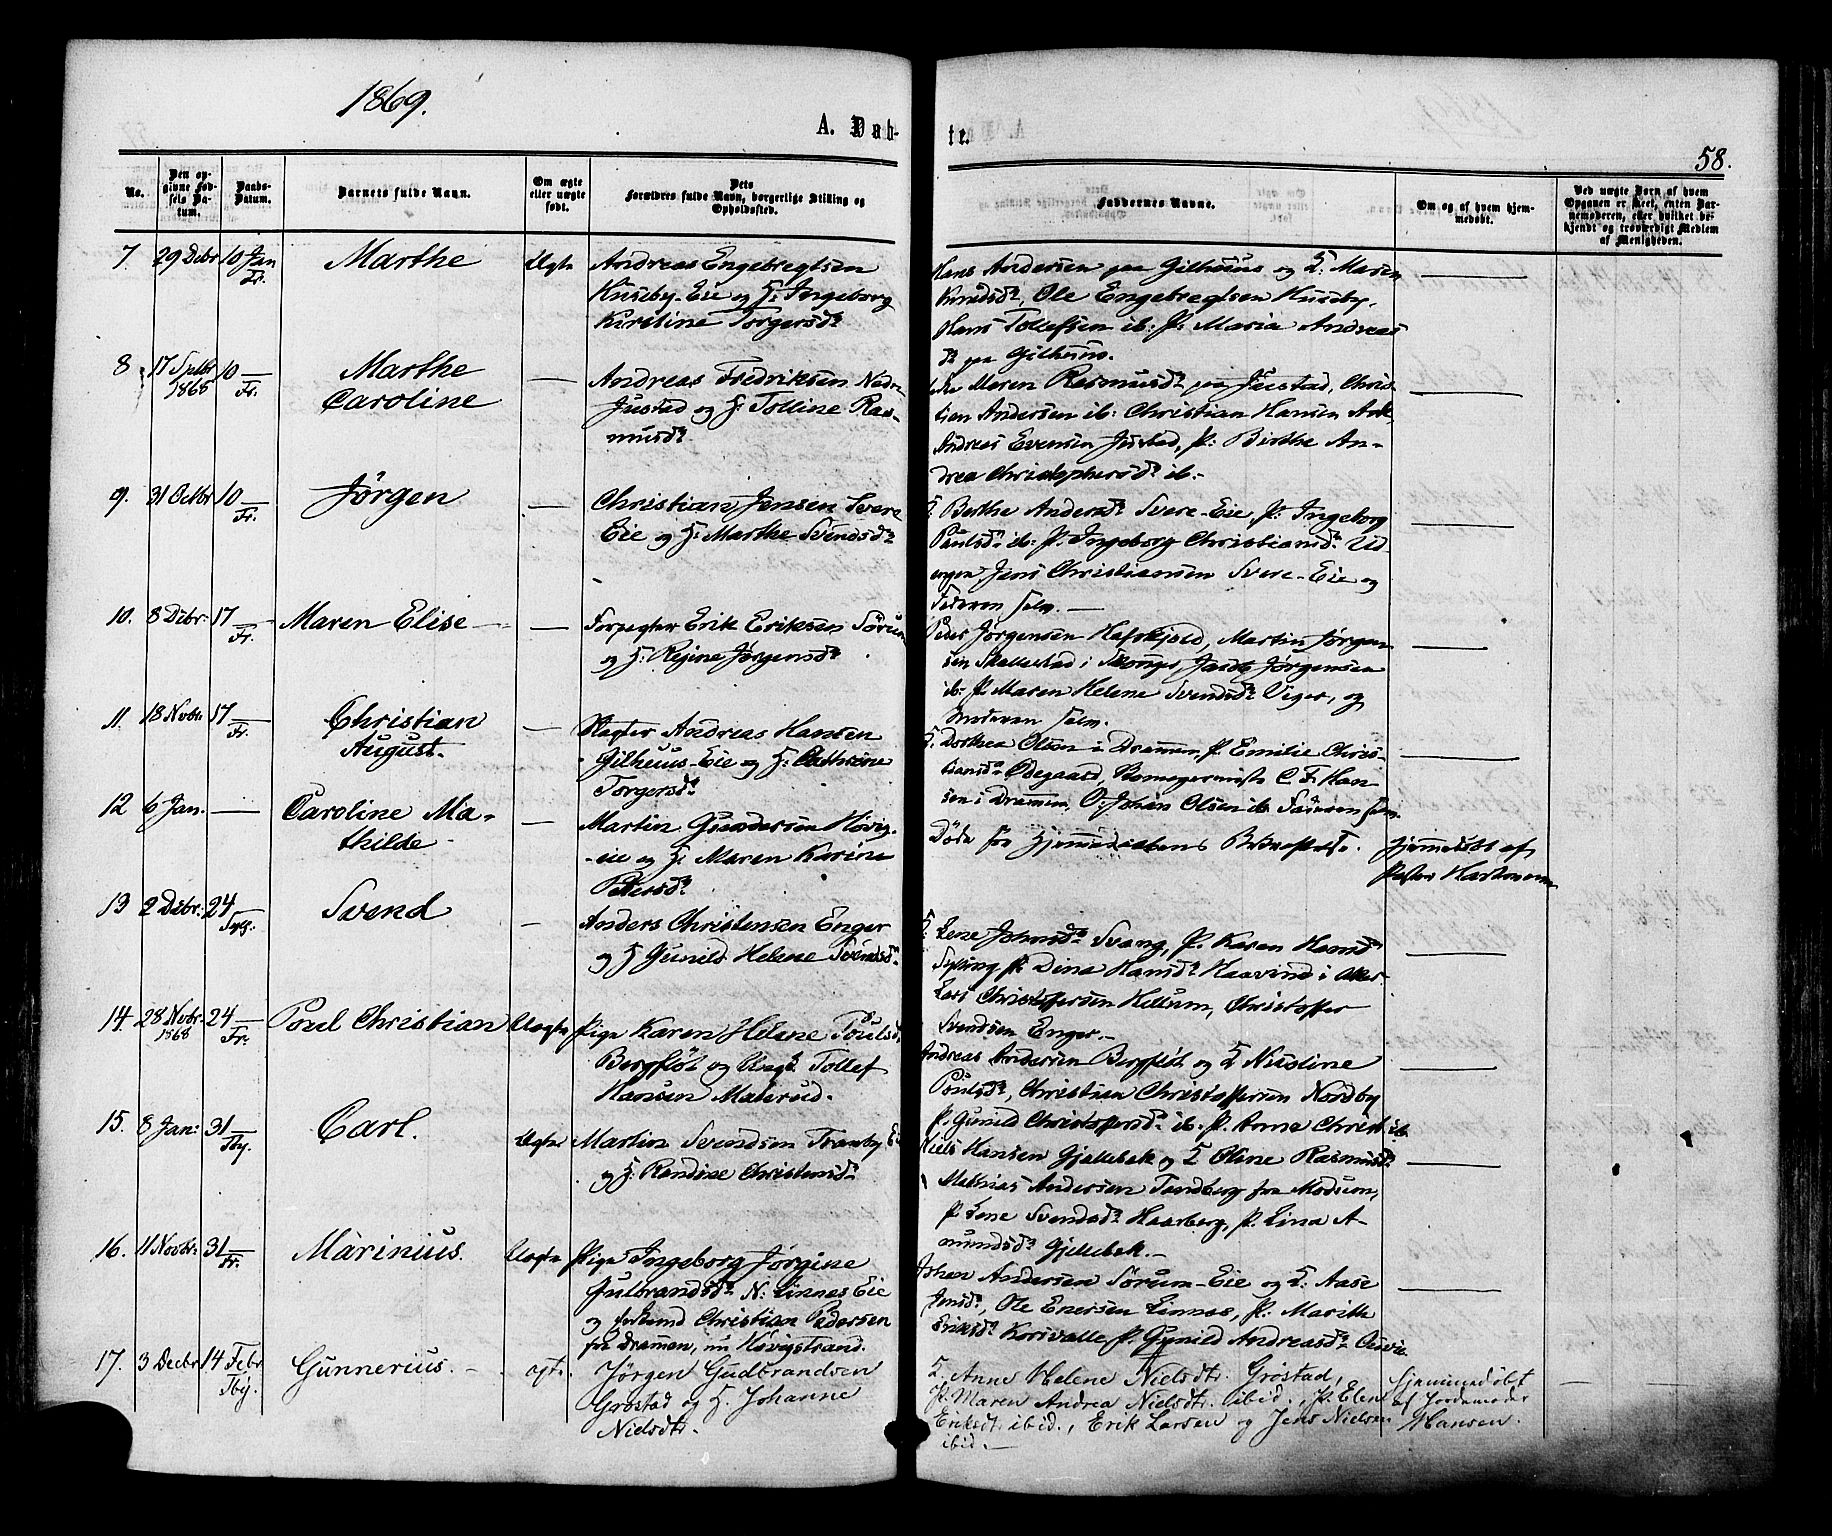 1869.
A. Døb-
te.
58.
No.
Den op-
givne Fød-
sels Da-
tum.
Daabs-
Datum.
Barnets fulde Navn.
Om ægte
eller uægte
født.
Dets
Forældres fulde Navn, borgerlige Stilling og
Opholdssted.
Faddernes Navne.
Om og af hvem hjem-
medøbt.
Ved uægte Børn af hvem
Opgaven er skeet, enten Bar-
nemoderen, eller hvilket be-
kjendt og troværdigt Medlem
af Menigheden.
7. 29 Debr 10 Jan Fr. Marthe Ægte
Andreas Engebregtsen
Huseby-Eie og H: Ingeborg
Kirstine Torgersdr
Hans Andersen paa Gilhuus og H: Maren
Knudsdr, Ole Engebregtsen Huseby,
Hans Tollefsen ib: P: Maria Andreas
dr paa Gilhuus.
8 17 Septbr 1868 10 — Fr. Marthe Caroline —
Andreas Fredriksen Nedre
Justad og H: Tolline Ras-
musdr
Maren Rasmusdr paa Justad, Chris-
tian Andersen ib: Christian Hansen Ask,
Andreas Evensen Justad, P: Birthe An-
drea Christophersdr ib:
9. 31 Octbr 10 — Fr. Jørgen —
Christian Jensen Svere
Eie og H: Marthe Svendsdr
K. Berthe Andersdr Svere-Eie, P: Ingeborg
Paulsdr ib: P. Ingeborg Christiansdr Ud-
engen, Jens Christiansen Svere-Eie og
Faderen selv. —
10. 8 Debr: 17 — Fr. Maren Elise —
Forpagter Erik Eriksen Sørum
og H: Regine Jørgensdr
Peder Jørgensen Hafskjold, Martin Jørgen
sen Skallestad i Skouge, Jacob Jørgensen
ib: P. Maren Helene Svendsdr Viger, og
Moderen selv.
11. 18 Novbr 17 — Fr. Christian August. —
Slagter Andreas Hansen
Gilhuus-Eie og H: Cathrine
Torgersdr
K. Dorthea Olsen i Drammen, P. Emilie Chris-
tiansdr Ødegaard, C F Han
sen i Drammen, O. Johan Olsen ib. Faderen selv.
12 6 Jan. — Caroline Ma-
thilde —
Martin Gundersen Høvig-
eie og H: Maren Karine
Petersdr
Døde før Hjemmedaabens Bekræftelse. Hjemmedøbt af
Pastor Hartmann
13 2 Debr: 24 — Sylg. Svend —
Anders Christensen Enger
og H Gunild Helene Svendsdr
K. Lene Johnsdr Svang, P. Karen Hansdr
Sylling P. Dina Hansdr Haavind i Aker
Lars Christoffersen Hellum, Christoffer
Svendsen Enger. —
14. 28 Novbr 1868 24 — Fr. Poul Christian Uægte
Pige Karen Helene Poulsdr
Bergfløt og Ungk Tollef
Hansen Malerud.
Andreas Andersen Bergfløt og K Nicoline
Poulsdr, Christian Christoffersen Nordby
P. Gunild Christoffersdr ib. P. Anna Christ ib
15. 8 Jan: 31 — Tby. Carl. Ægte
Martin Svendsen Tranby Eie
og H: Randine Christensdr
Niels Hansen Gjellebek og K Oline Rasmusdr
Mathias Andersen Tandberg fra Modum,
P. Lene Svendsdr Haarberg, P. Lina A-
mundsdr Gjellebek. —
16. 11 Novbr: 31 — Fr. Marinius. Uægte
Pige Ingeborg Jørgine
Gulbrandsdr N: Linnes Eie
og Christian Pedersen
fra Drammen, nu Høvigstrand.
Johan Andersen Sørum-Eie og K: Aase
Jensdr, Ole Enersen Linnes, P: Marithe
Eriksdr Korsvalle, P. Gunild Andreasdr
17. 3 Decbr 14 Febr Tby. Gunnerius. ægte
Jørgen Gudbrandsen
Grøstad og H. Johanne
Nielsdtr
K. Anne Helene Nielsdtr. Grøstad,
P. Maren Andrea Nielsdtr. ibid., P. Elen
Eriksdtr. ibid., Erik Larsen og Jens Nielsen
ibid. —
Hjemmedøbt
af Jordemoder
Hansen.